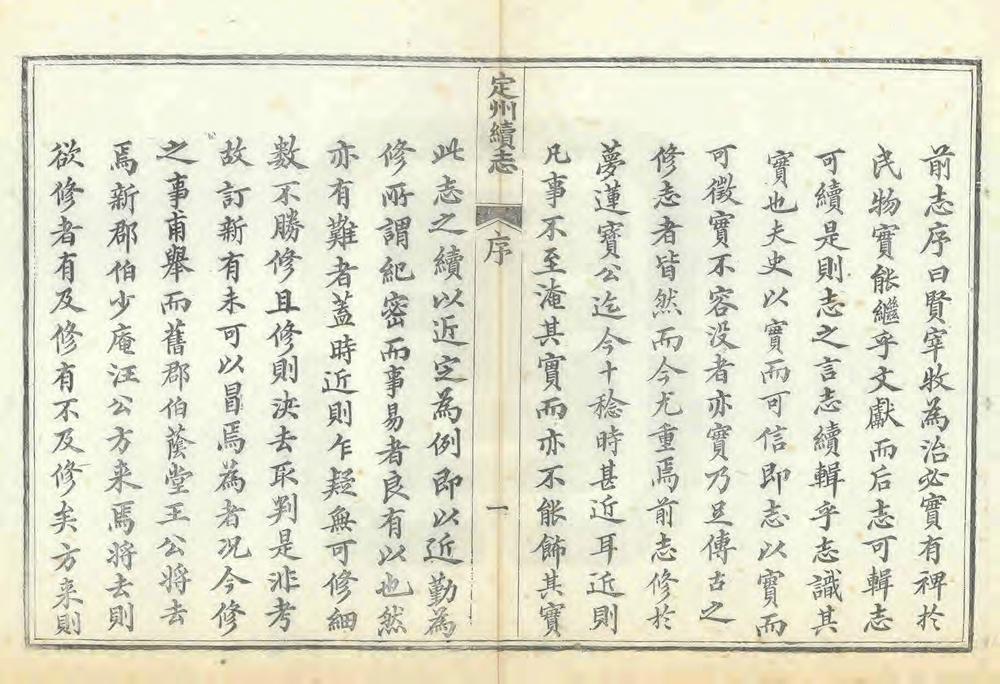 前志序曰賢宰牧為治必實有裨扵
民物實能繼乎文獻而后志可輯志
可續是則志之言志續輯乎志識其
實也夫史以實而可信即志以實而
可徵實不容没者亦實乃足傳古之
修志者皆然而今尤重焉前志修扵
夢蓮寳公迄今十稔時甚近耳近則
凡事不至淹其實而亦不能飾其實
定州續志
序
一
此志之續以近定為例即以近勤為
修所謂紀密而事易者良有以也然
亦有難者蓋時近則乍疑無可修細
數不勝修且修則決去取判是非考
故訂新有未可以冒焉為者况今修
之事甫舉而舊郡伯蔭堂王公將去
焉新郡伯少庵汪公方来焉將去則
欲修者有及修有不及修矣方来則